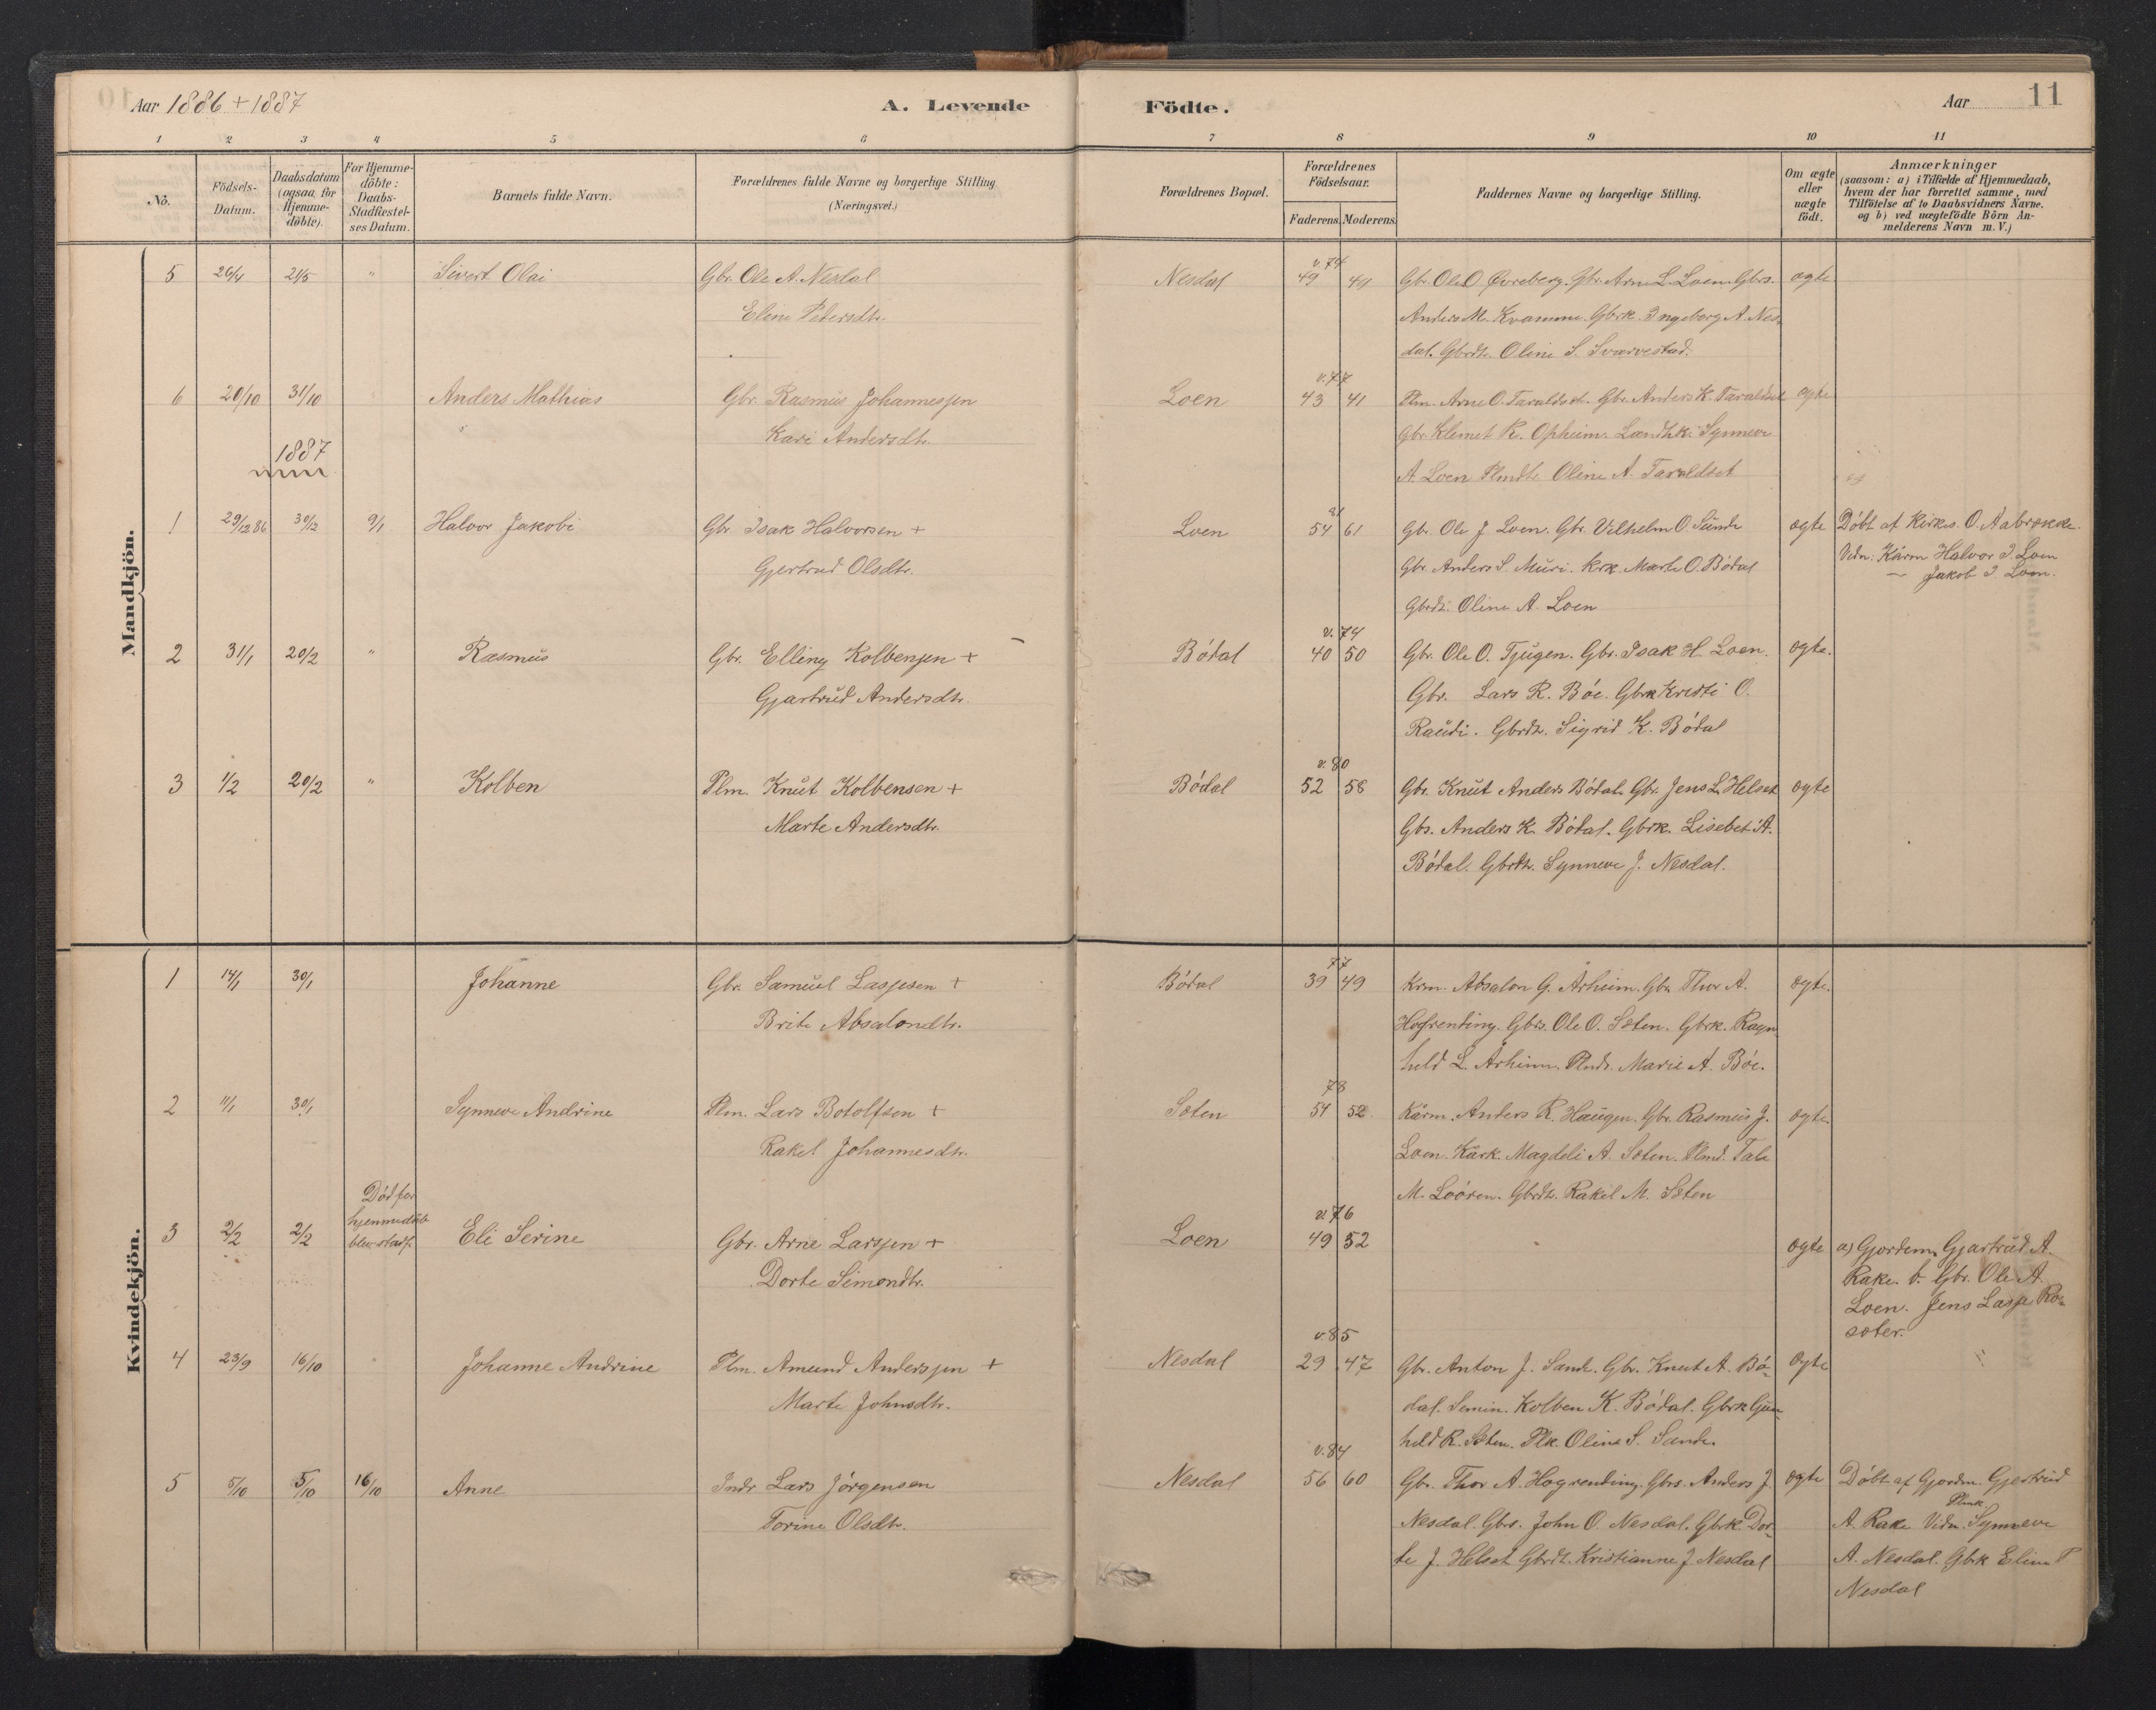 Aar 1886 + 1887
A. Levende Födte.
Aar 11
1 2 3 4 5 6 7 8 9 10 11
No.
Födsels-Datum.
Daabsdatum (ogsaa for Hjemme-döbte).
For Hjemme-döbte: Daabs-Stadfæstel-ses Datum.
Barnets fulde Navn.
Forældrenes fulde Navne og borgerlige Stilling (Næringsvei.)
Forældrenes Bopæl.
Forældrenes Födselsaar.
Faderens. Moderens.
Faddernes Navne og borgerlige Stilling.
Om ægte eller uægte födt.
Anmærkninger
(saasom: a) i Tilfælde af Hjemmedaab,
hvem der har forrettet samme, med
Tilföielse af to Daabsvidners Navne.
og b) ved uægtefödte Börn An-
melderens Navn m. V.)
Mandkjön.
5 26/4 21/5 " Sivert Olai Gbr. Ole A. Nesdal Nesdal v. 74 49 Gbr. Ole O. Øvreberg. Gbr. Arne L. Loen. Gbrs. ægte
Eline Petersdtr. Anders M. Kvamme. Gbrk. Ingeborg A. Nes-
dal. Gbrdtr. Oline S. Svarvestad.
6 20/10 31/10 Anders Mathias Gbr. Rasmus Johannessen Loen v. 77 43 41 Plm. Arne O. Taraldset. Gbr. Anders K. Taraldset ægte
Kari Andersdtr. Gbr. Klemet R. Opheim. Landhk. Synneve
A. Loen Plmdtr. Oline A. Taraldset
1887
1 29/12 86 30/12 9/1 Halvor Jakobi Gbr. Isak Halvorsen + Loen 81 54 61 Gbr. Ole J. Loen. Gbr. Vilhelm O. Sunde ægte Döbt af Kirkes. O. Aabrekke.
Gjertrud Olsdtr. Gbr. Anders S. Muri. Krk. Marte O. Bödal Vidn: Kårm Halvor I. Loen
Gbrdtr. Oline A. Loen — Jakob I. Loen.
2 31/1 20/2 " Rasmus Gbr. Elling Kolbensen + Bödal v. 74 40 50 Gbr. Ole O. Tjugen. Gbr. Isak H. Loen. ægte.
Gjartrud Andersdtr. Gbr. Lars R. Böe. Gbrk Kristi O.
Raudi. Gbrdtr. Sigrid K. Bödal
3 1/2 20/2 " Kolben Plm. Knut Kolbensen + Bödal v. 80 52 58 Gbr. Knut Anders Bödal. Gbr. Jens L. Helset ægte
Marte Andersdtr. Gbs. Anders K. Bödal. Gbrk. Lisebet A.
Bödal. Gbrdtr. Synneve J. Nesdal.
Kvindekjön.
1 14/1 30/1 Johanne Gbr. Samuel Lassesen + Bödal 77 39 49 Krm. Absalon G. Årheim. Gbr. Thor A. ægte.
Brite Absalondtr. Hogrenning. Gbrs. Ole O. Sæten. Gbrk. Ragn-
hild L. Årheim. Plmdr. Marie A. Böe.
2 11/1 30/1 Synneve Andrine Plm. Lars Botolfsen + Sæten 78 54 52 Kårm. Anders R. Haugen. Gbr. Rasmus J. ægte.
Rakel Johannesdtr. Loen. Kårk. Magdeli A. Sæten. Plmd. Tale
M. Looren. Gbrdtr. Rakel M. Sæten
3 2/2 2/2 Död før hjemmedåb blev stadf. Eli Serine Gbr. Arne Larssen + Loen v. 76 49 52 ægte a) Gjordem. Gjartrud A.
Dorte Simondtr. Rake. b. Gbr. Ole A.
Loen. Jens Lasse Ro-
sæter.
4 23/9 16/10 Johanne Andrine Plm. Amund Anderssen + Nesdal v. 85 29 47 Gbr. Anton J. Sande. Gbr. Knut A. Bö- ægte "
Marte Johnsdtr. dal. Semin. Kolben K. Bödal. Gbrk Gun-
hild R. Sæten. Plk. Oline S. Sande.
5 5/10 5/10 16/10 Anne Indr Lars Jörgensen Nesdal v. 84 56 60 Gbr. Thor A. Hogrenning. Gbrs. Anders J. ægte Döbt af Gjordm. Gjertrud
Torine Olsdtr. Nesdal. Gbrs. John O. Nesdal. Gbrk. Dor- A. Rake Vidn. Plmk. Synneve
te J. Helset Gbrdt. Kristianne J Nesdal A. Nesdal. Gbrk Eline P
Nesdal